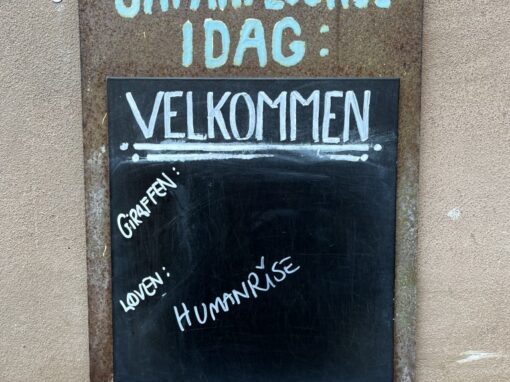 IDAG:
VELKOMMEN
GIRAFFEN:
LØVEN:
HUMANRISE